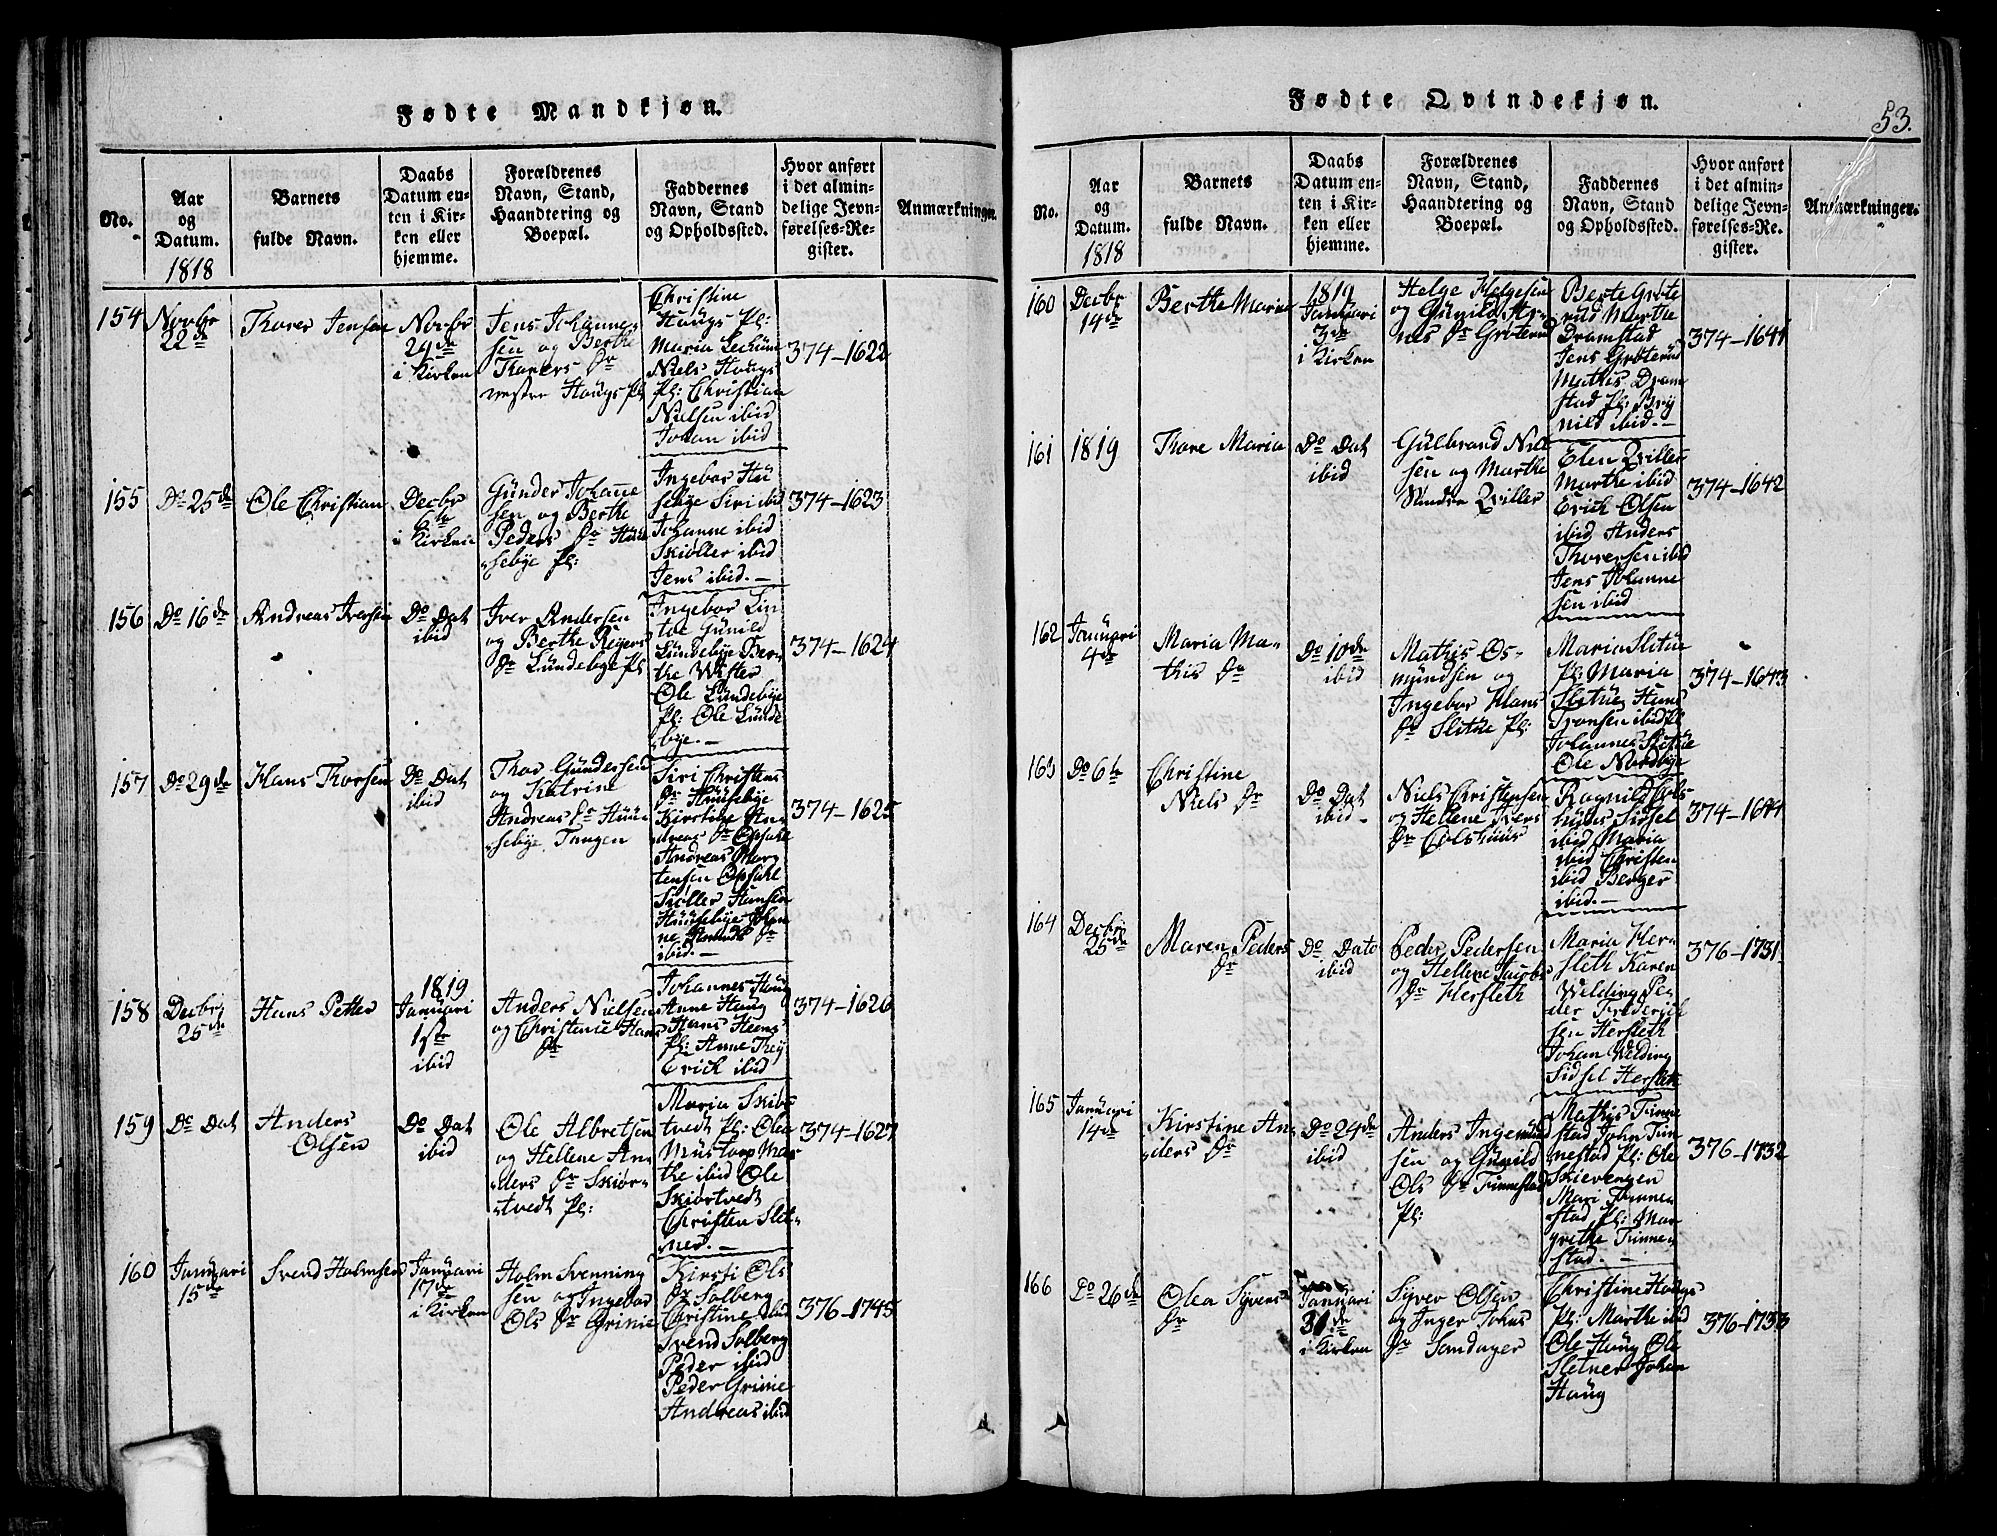 Fødte Mandkjøn.
No.
Aar
og
Datum.
1818
Barnets
fulde Navn.
Daabs
Datum en-
ten i Kir-
ken eller
hjemme.
Forældrenes
Navn, Stand,
Haandtering og
Boepæl.
Faddernes
Navn, Stand
og Opholdssted.
Hvor anført
i det almin-
delige Jevn-
førelses-Re-
gister.
Anmærkninger.
154
Novbr
22de
Thorer Jensen
Novbr
29de
i Kirken
Jens Johanne-
sen og Berthe
Thorers Dr
vestre Haugs Pl
Christine
Haugs Pl:
Maria
Niels Haugs
Pl: Christian
Nielsen ibid
Johan ibid
374-1622
155
Do 25de
Ole Christian
Decbr
6te
i Kirken
Günder Johanne
sen og Berthe
Peders Dr Huu
sebye Pl:
Ingebor Hü
sebye Siri ibid
Johanne ibid
Skiøller ibid
Jens ibid.-
374-1623
156
Do 16de
Andreas Iversen
Do Dat
ibid
Iver Andersen
og Berthe
Dr Lündebye Pl
Ingebor Lin
toe Gunild
Lündebye Ber-
the
Ole Lündebye
Pl: Ole Lünde
bye.-
374-1624
157
Do 29de
Hans Thorsen
Do Dat
ibid
Thor Gündersen
og Katrine
Andreas Dr Huu
sebye Tangen
Siri Christens
Dr Huusebye
Kirstine An
dreas Dr Opsahl
Andreas Mor
tensen Opsahl
Siøller Hansen
Huusebye Johan
ne Amunds Dr
ibid.-
374-1625
158
Decbr
25de
Hans Petter
1819
Januari
1ste
ibid
Anders Nielsen
og Christenie Hans
Dr
Johannes Haug
Anne Haug
Hans
Pl: Anne
Erick ibid
374-1626
159
Do Dat
Anders
Olsen
Do Dat
ibid
Ole Albretsen
og Hellene An-
ders Dr Skiør-
tvedt Pl:
Maria Skiør
tvedt Pl: Olea
Müstorp Mar
the ibid Ole
Skiørtvedt
Christen Slet-
ner.-
374-1627
160
Januari
15de
Svend Holmsen
Januari
17de
i Kirken
Holm Svenning
sen og Ingebor
Ols Dr Grinie
Kirsti Ols
Dr Solberg
Christine ibid
Svend Solberg
Peder ibid
Peder Grinie
Andreas ibid
376-1745
Fødte Qvindekjøn.
53.
No.
Aar
og
Datum.
1818
Barnets
fulde Navn.
Daabs
Datum en-
ten i Kir-
ken eller
hjemme.
Forældrenes
Navn, Stand,
Haandtering og
Boepæl.
Faddernes
Navn, Stand
og Opholdssted.
Hvor anført
i det almin-
delige Jevn-
førelses-Re-
gister.
Anmærkninger.
160
Decbr
14de
Berthe Maria
1819
Januari
3de
i Kirken
Helge Helgesen
og Günild Ar-
nes Dr Grøterud
Berte Grøte
rud Marthe
Dramstad
Jens Grøterud
Mathis Dram
stad Pl:
ibid.-
374-1641
161
1819
Thore Maria
Do Dat
ibid
Gulbrand Niel
sen og Marthe
Qviller
Elen Qviller
Marthe ibid
Erick Olsen
ibid Anders
Thoresen ibid
Jens Johanne
sen ibid
374-1642
162
Januari
4de
Maria Ma-
this Dr
Do 10de
ibid
Mathis Os-
mundsen og
Ingebor Hans
Dr Slitue Pl:
Maria Slitue
Pl: Maria
Slitue Hans
Tronsen ibid Pl
Johannes Slitue
Ole Nordbye
374-1643
163
Do 6te
Christine
Niels Dr
Do Dat
ibid-
Niels Christensen
og Hellene Ivers
Dr Colshuus
Ragnild Cols-
huus Sirsel
ibid Maria
ibid Christen
ibid Berger
ibid.-
374-1644
164
Decbr
25de
Maren Peders
Dr
Do Dato
ibid
Peder Pedersen
og Hellene Jacobs
Dr Hersleth
Maria Her-
sleth Karen
Welding Pe-
der Frederich
sen Hersleth
Johan Welding
Sidsel Hersleth
376-1731
165
Januari
14de
Kirstine An-
ders Dr
Do 24de
ibid
Anders Ingemund
sen og Günild
Ols Dr Finnestad
Pl:
Mathis Finne
stad John Fin
nestad Pl: Ole
Skievengen
Mari Finne-
stad Pl: Mar
grethe Finne-
stad.-
376-1732
166
Do 26de
Olea Syvers
Dr
Januari
31de
i Kirken
Syver Olsen
og Inger Johns
Dr Sandager
Christine Haugs
Pl: Marthe ibid
Ole Haug Ole
Sletner Johan
Haug
376-1733